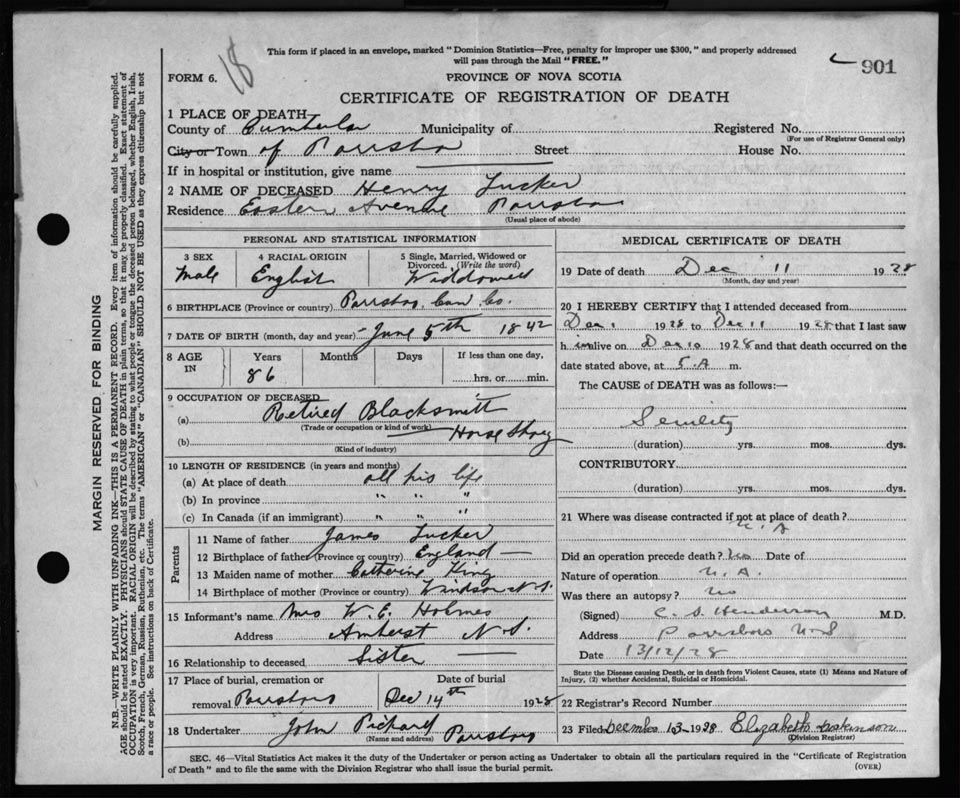 18
This form if placed in an envelope, marked "Dominion Statistics—Free, penalty for improper use $300," and properly addressed
will pass through the Mail "FREE."
901
FORM 6.
PROVINCE OF NOVA SCOTIA
CERTIFICATE OF REGISTRATION OF DEATH
1 PLACE OF DEATH
County of Cumberland Municipality of Registered No.
(For use of Registrar General only)
City or Town of Parrsboro Street House No.
If in hospital or institution, give name
2 NAME OF DECEASED Henry Tucker
Residence Eastern Avenue Parrsboro
(Usual place of abode)
PERSONAL AND STATISTICAL INFORMATION
3 SEX 4 RACIAL ORIGIN 5 Single, Married, Widowed or
Divorced. (Write the word)
Male English Widdowed
6 BIRTHPLACE (Province or country) Parrsboro, Cum Co.
7 DATE OF BIRTH (month, day and year) June 5th 1842
8 AGE IN Years Months Days If less than one day,
86 hrs. or min.
9 OCCUPATION OF DECEASED
(a) Retired Blacksmith
(Trade or occupation or kind of work)
(b) Horse Shoeing
(Kind of industry)
10 LENGTH OF RESIDENCE (in years and months)
(a) At place of death all his life
(b) In province " " "
(c) In Canada (if an immigrant) " " "
Parents
11 Name of father James Tucker
12 Birthplace of father (Province or country) England
13 Maiden name of mother Catherine King
14 Birthplace of mother (Province or country) Windsor N.S.
15 Informant's name Mrs W. E. Holmes
Address Amherst N.S.
16 Relationship to deceased Sister
17 Place of burial, cremation or Date of burial
removal Parrsboro Dec 14th 1928
18 Undertaker John Pickard Parrsboro
(Name and address)
MEDICAL CERTIFICATE OF DEATH
19 Date of death Dec 11 1928
(Month, day and year)
20 I HEREBY CERTIFY that I attended deceased from
Dec 1 1928 to Dec 11 1928 that I last saw
h im alive on Dec 10 1928 and that death occurred on the
date stated above, at 5.A m.
The CAUSE of DEATH was as follows:—
Senility
(duration) yrs. mos. dys.
CONTRIBUTORY
(duration) yrs. mos. dys.
21 Where was disease contracted if not at place of death?
N.A
Did an operation precede death? No Date of
Nature of operation N.A.
Was there an autopsy? No
(Signed) C. S. Henderson M.D.
Address Parrsboro N.S
Date 13/12/28
State the Disease causing Death, or in death from Violent Causes, state (1) Means and Nature of
Injury, (2) whether Accidental, Suicidal or Homicidal.
22 Registrar's Record Number
23 Filed December 13 1928 Elizabeth
(Division Registrar)
SEC. 46—Vital Statistics Act makes it the duty of the Undertaker or person acting as Undertaker to obtain all the particulars required in the "Certificate of Registration
of Death" and to file the same with the Division Registrar who shall issue the burial permit. (OVER)
MARGIN RESERVED FOR BINDING
N.B.—WRITE PLAINLY WITH UNFADING INK—THIS IS A PERMANENT RECORD. Every item of information should be carefully supplied.
AGE should be stated EXACTLY. PHYSICIANS should STATE CAUSE OF DEATH in plain terms, so that it may be properly classified. Exact statement of
OCCUPATION is very important. RACIAL ORIGIN will be described by stating to what people or tongue the deceased person belonged, whether English, Irish,
Scotch, French, German, Russian, Ruthenian, etc. The terms "AMERICAN" or "CANADIAN" SHOULD NOT BE USED as they express citizenship but not
a race or people. See instructions on back of Certificate.